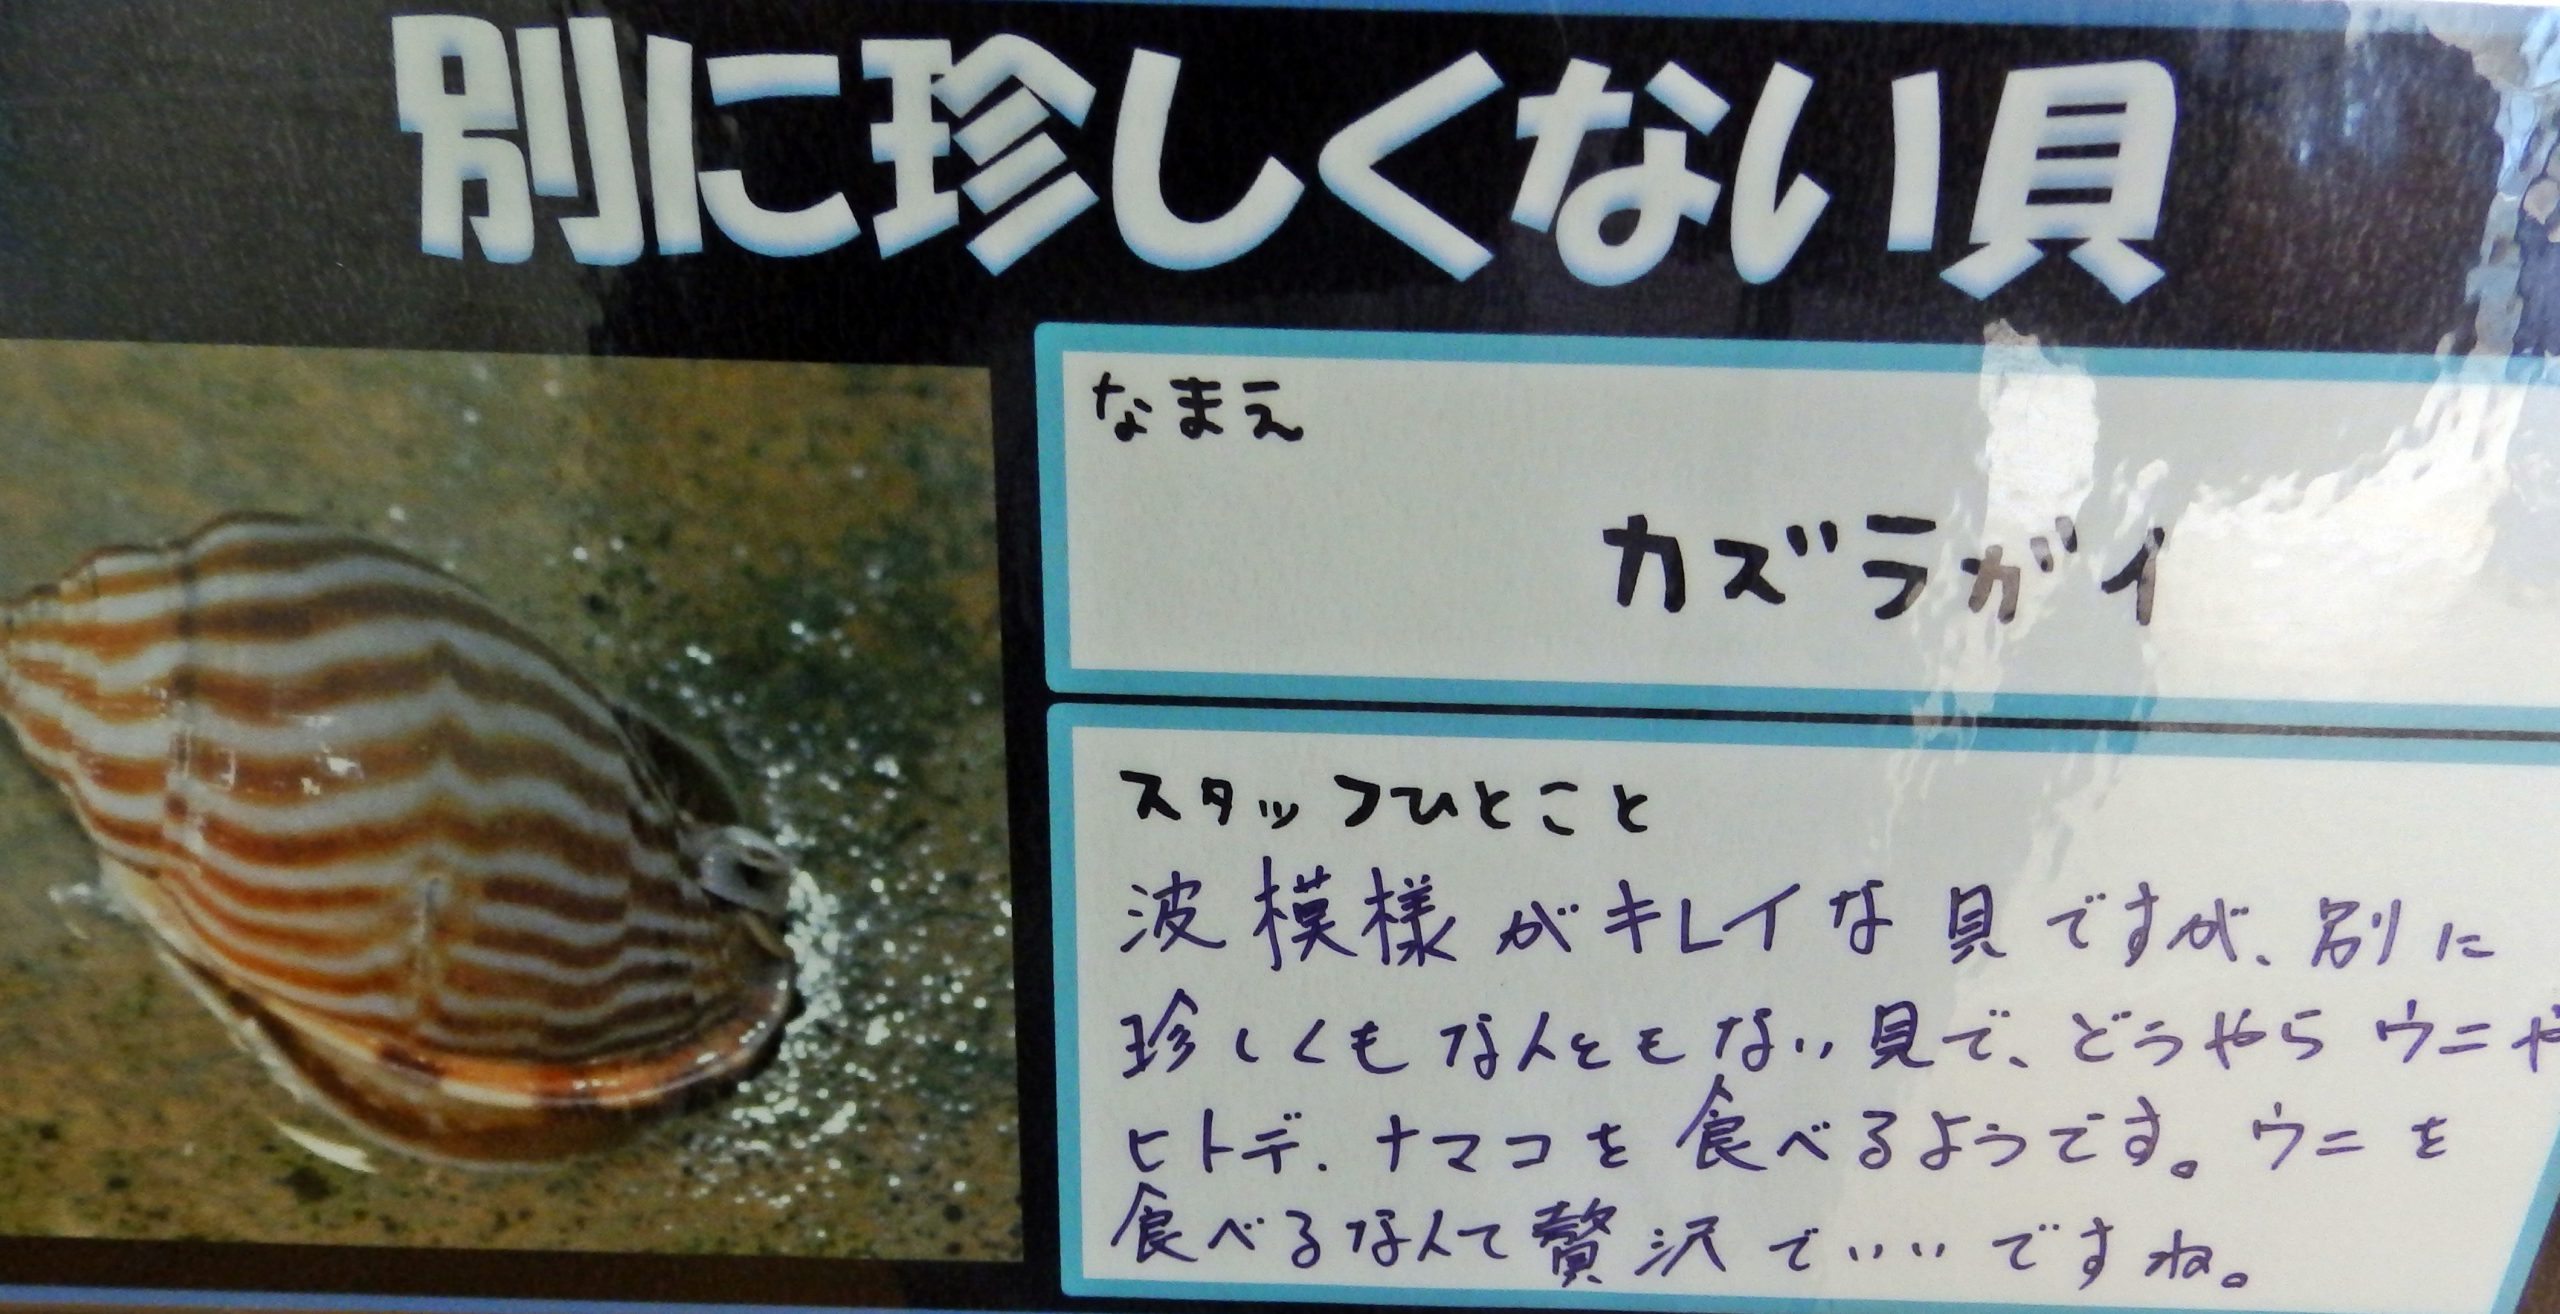 別に珍しくない貝
なまえ
カズラガイ
スタッフひとこと
波模様がキレイな貝ですが、別に
珍しくもなんともない貝で、どうやらウニや
ヒトデ、ナマコを食べるようです。ウニを
食べるなんて贅沢でいいですね。